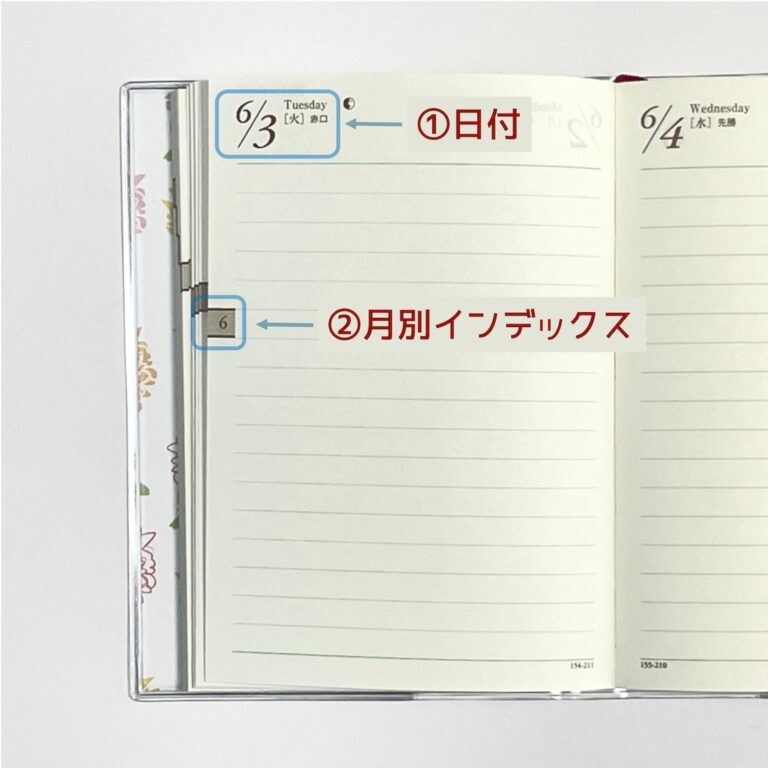 6/3 Tuesday
[火] 赤口
①日付
6/4 Wednesday
[水] 先勝
6
②月別インデックス
154-211
155-210